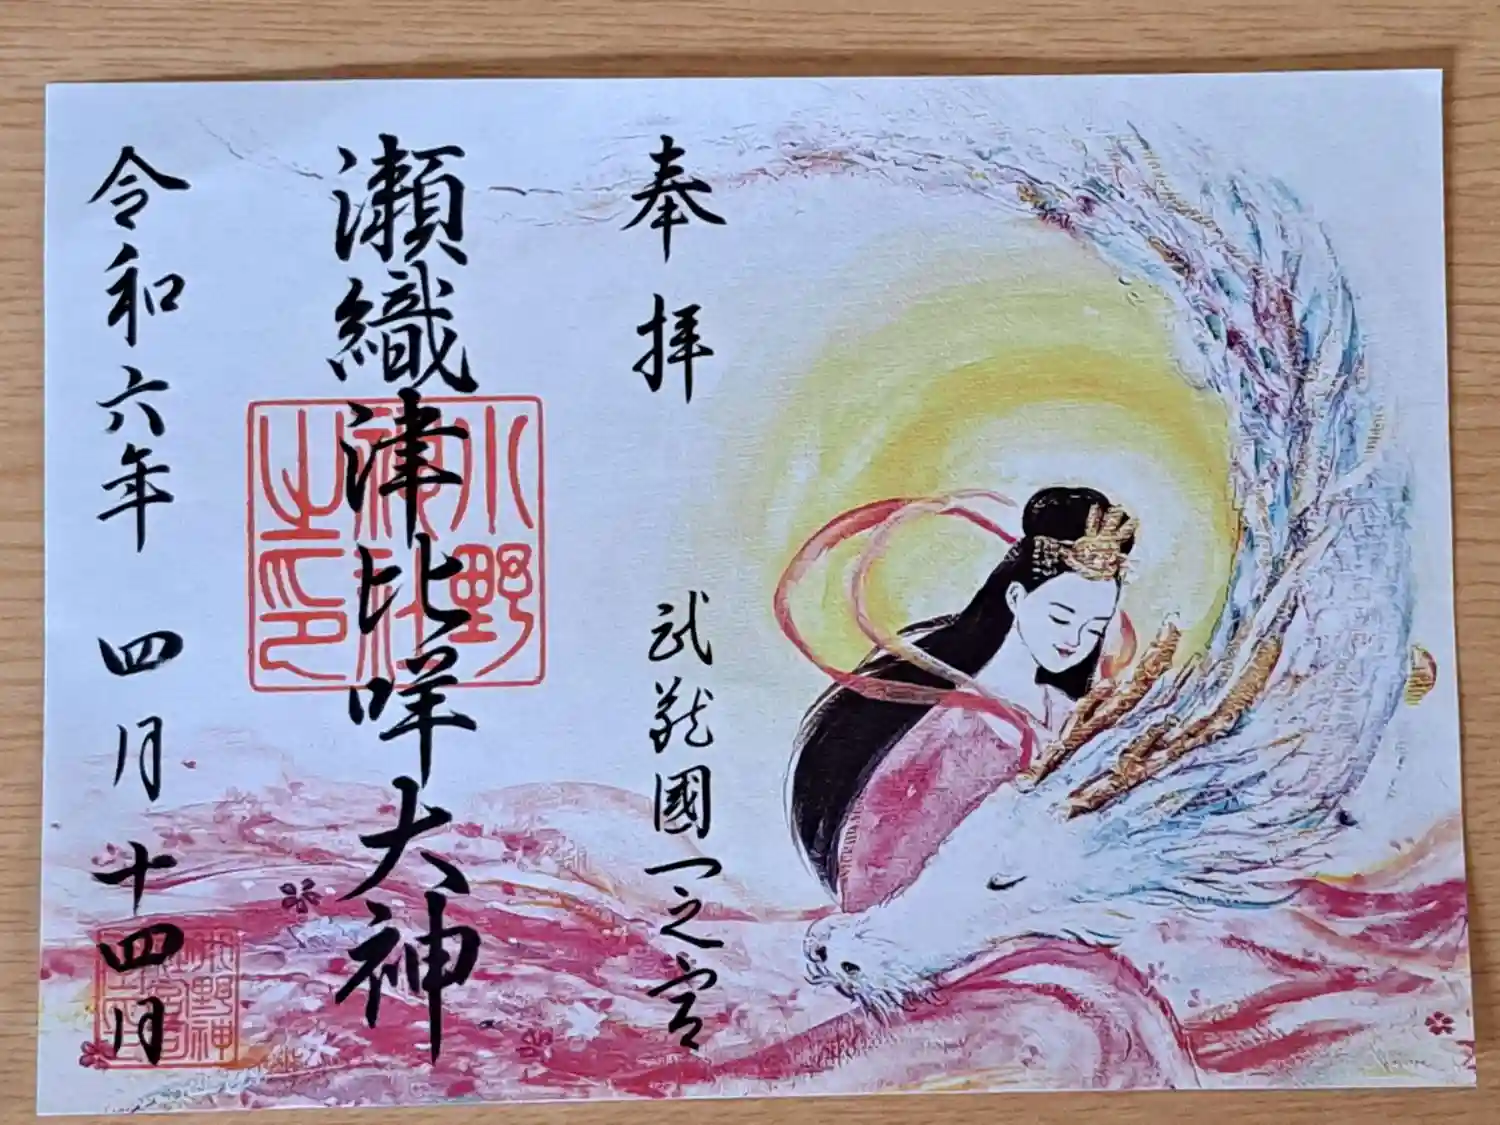 奉拝
武蔵國一之宮
瀬織津比咩大神
小野
神社
之印
令和六年 四月 十四日